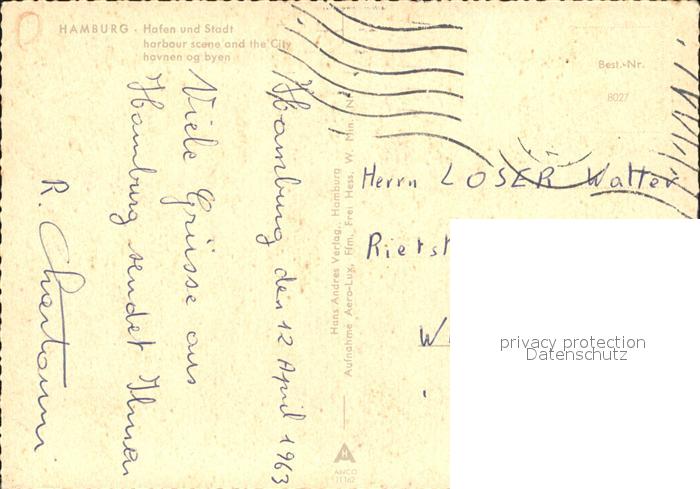 HAMBURG - Hafen und Stadt
harbour scene and the City
havnen og byen
Best.-Nr.
8027
Hamburg den 12 April 1963
Viele Grüsse aus
Hamburg sendet Ihnen
R.
Hans Andres Verlag, Hamburg
Aufnahme Aero-Lux, Ffm. Frei Hess. W. Min. N
ANCO
11162
Herrn LOSER Walter
privacy protection
Datenschutz